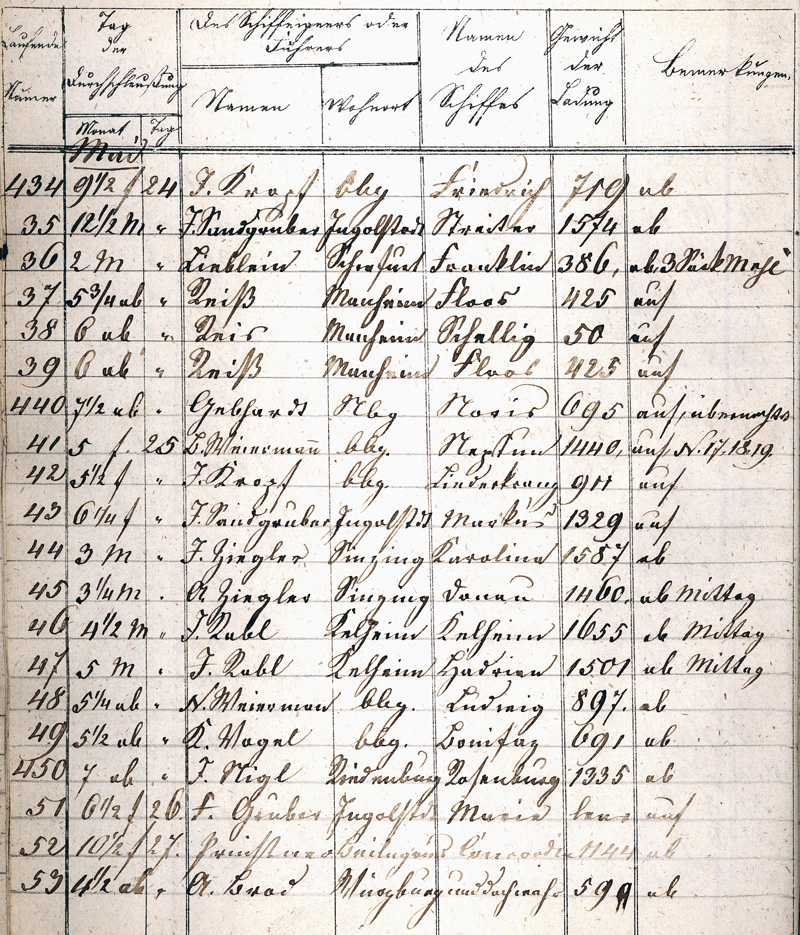 Laufende Numer
Tag der Durchschleußung
Monat Tag
Des Schiffeigners oder Führers
Namen Wohnort
Namen des Schiffes
Gewicht der Ladung
Bemerkungen.
Mai
434 9 1/2 f 24 J. Kropf bbg Friedrich 719 ab
35 12 1/2 M " J. Sandgruber Ingolstadt Streiter 1574 ab
36 2 M " Lieblein Franklin 386, ab. 3 Säck Mehl
37 5 3/4 ab " Reiß Manheim Floos 425 auf
38 6 ab " Reis Manheim Schellig 50 auf
39 6 ab " Reiß Manheim Floos 425 auf
440 7 1/2 ab " Gebhardt Nbg Noris 695 auf,
41 5 f. 25 L. Weiermann bbg. Neptun 1440, auf N. 17. 18. 19.
42 5 1/2 f " J. Kropf bbg Liederkranz 911 auf
43 6 1/4 f " J. Sandgruber Ingolstdt Markus 1329 auf
44 3 M " J. Ziegler Sinzing Karolina 1587 ab
45 3 1/4 M " A Ziegler Sinzing Donau 1460. ab Mittag
46 4 1/2 M " J. Rabl Kelheim Kelheim 1655 ab Mittag
47 5 M " J. Rabl Kelheim Hadrian 1501 ab Mittag
48 5 1/4 ab " N. Weierman bbg. Ludwig 897. ab
49 5 1/2 ab " K. Vogel bbg. Bonifaz 691 ab
450 7 ab " J. Nigl Riedenburg Rosenburg 1335 ab
51 6 1/2 f 26. F. Gruber Ingolstdt Marie leer auf
52 10 1/2 f 27. Concordia 1144 ab
53 4 1/2 ab " A. Brod Würzburg 599 ab